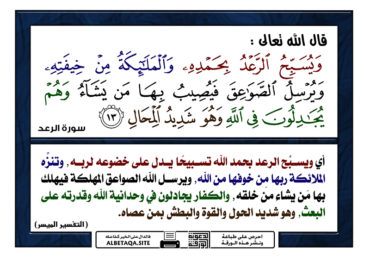 قال الله تعالى :
وَيُسَبِّحُ الرَّعْدُ بِحَمْدِهِۦ وَالْمَلَٰٓئِكَةُ مِنْ خِيفَتِهِۦ
وَيُرْسِلُ الصَّوَٰعِقَ فَيُصِيبُ بِهَا مَن يَشَآءُ وَهُمْ
يُجَٰدِلُونَ فِي اللَّهِ وَهُوَ شَدِيدُ الْمِحَالِ ﴿١٣﴾
سورة الرعد
أي ويسبِّح الرعد بحمد الله تسبيحًا يدل على خضوعه لربه , وتنزِّه
الملائكة ربها من خوفها من الله, ويرسل الله الصواعق المهلكة فيهلك
بها مَن يشاء من خلقه , والكفار يجادلون في وحدانية الله وقدرته على
البعث, وهو شديد الحول والقوة والبطش بمن عصاه.
(التفسير الميسر)
احرص على طباعة
ونشر هذه الورقة
ALBETAQA.SITE